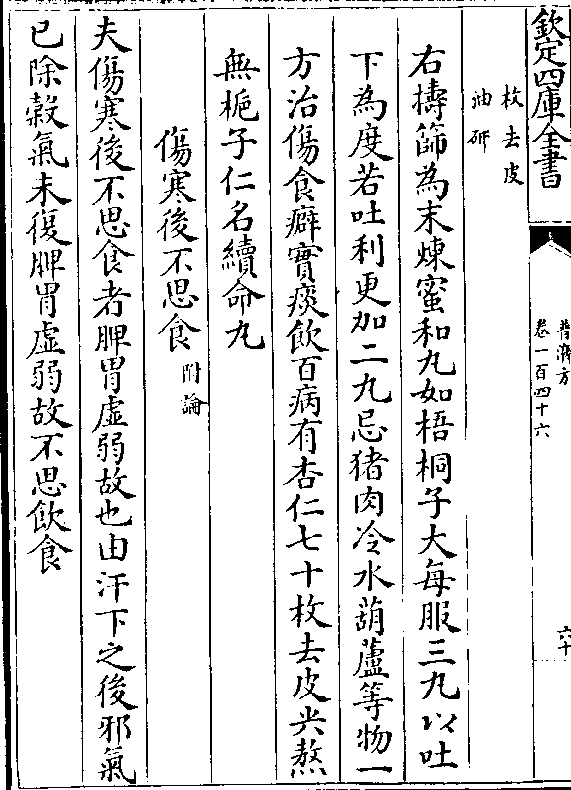 欽定四庫全書
普濟方
卷一百四十六
六十
枚去皮
油研
右擣篩為末煉蜜和丸如梧桐子大每服三丸以吐
下為度若吐利更加二丸忌猪肉冷水葫蘆等物一
方治傷食癖實痰飲百病有杏仁七十枚去皮尖熬
無梔子仁名續命丸
傷寒後不思食附論
夫傷寒後不思食者脾胃虛弱故也由汗下之後邪氣
已除榖氣未復脾胃虛弱故不思飲食